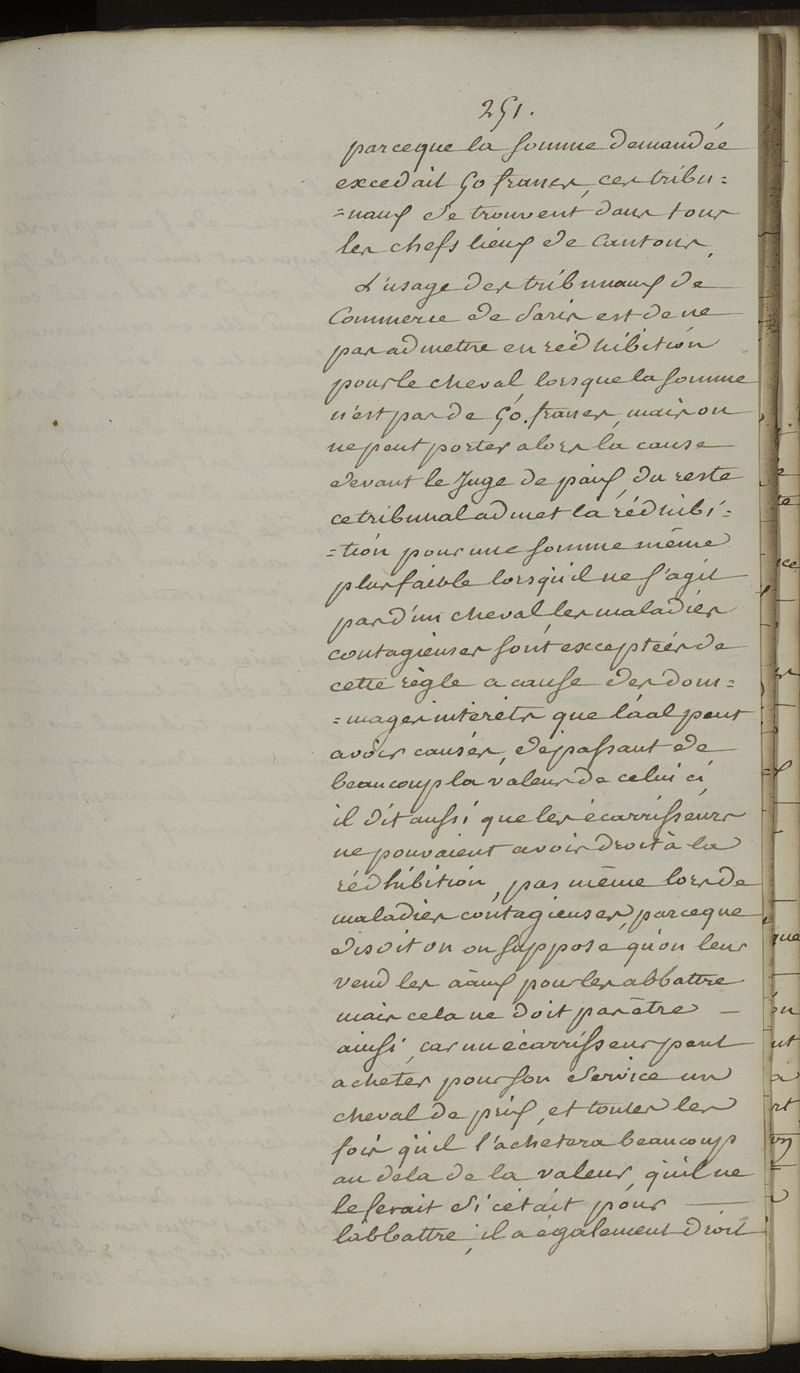 251.
parceque la somme demandée
excedait 50 francs, ces tribu=
=naux se trouvent dans tous
les chefs lieux de Cantons.
L'usage des tribunaux de
Commerce de Paris est de ne
pas admettre en rédhibition
pour le cheval, lorsque la somme
n'est pas de 50. francs, mais on
ne peut porter alors la cause
devant le Juge de paix, du reste
ce tribunal admet la rédhibi=
=tion pour une somme même
plus faible lorsqu'il ne s'agit
pas d'un cheval les maladies
contagieuses sont exceptées de
cette règle a cause des dom=
=mages interêts que l'aal peut
avoir causés, dépassant de
beaucoup la valeur de celui ci,
il dit aussi que les écarrisseurs
ne pouvaient avoir droit à la
rédhibition, pas même lors de
maladies contagieuses parceque
disoit on on suppose qu'on leur
vend les aâux pour les abbattre
mais cela ne doit pas être —
ainsi, car un écarrisseur peut
acheter pour son service un
cheval de prix, et toutes les
fois qu'il l'achetera beaucoup
au dela de la valeur, qu'il ne
le ferait si c'était pour —
l'abbattre, il a également droit